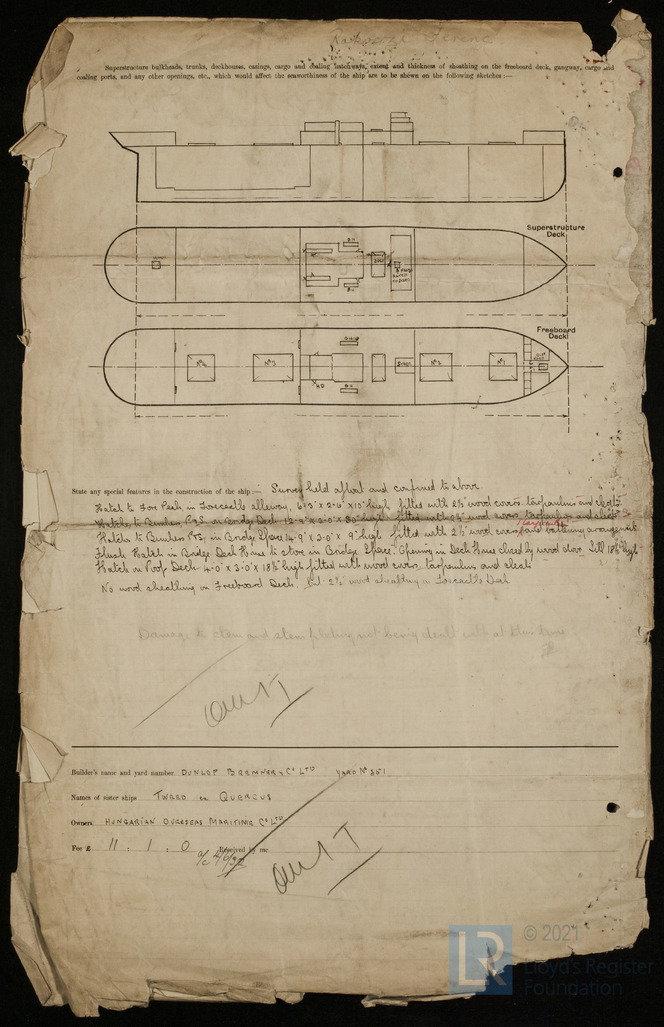 Superstructure bulkheads, trunks, deckhouses, casings, cargo and coaling hatchways, extent and thickness of sheathing on the freeboard deck, gangway, cargo and
coaling ports, and any other openings, etc., which would affect the seaworthiness of the ship are to be shewn on the following sketches:—
Superstructure
Deck
Freeboard
Deck
Nº4
Nº3
Nº2
Nº1
State any special features in the construction of the ship:— Survey held afloat and confined to above
Hatch to Fore Peak in Forecastle alleyway, x 2'-6" x 10" high fitted with 2½" wood covers tarpaulins and cleats
Hatches to Bunkers P&S on Bridge Deck 12'-9" x 2'-0" x 30" high fitted with 2½" wood covers tarpaulins and cleats
Hatch to Bunkers P&S in Bridge Space 14'-9" x 3'-0" x 9" high fitted with 2½" wood covers and battening arrangements
Flush Hatch in Bridge Deck House to store in Bridge Space. Opening in Deck House closed by wood door. Sill 18½" high
Hatch on Poop Deck 4'-0" x 3'-0" x 18½" high fitted with wood covers tarpaulins and cleats
No wood sheathing on Freeboard Deck. 2½" wood sheathing on Forecastle Deck
Damage to stem and stem plating not being dealt with at this time.
Builder's name and yard number DUNLOP BREMNER & Cº LTD YARD Nº 351
Names of sister ships TWEED ex QUERCUS
Owners HUNGARIAN OVERSEAS MARITIME Cº LTD
Fee £ 11 : 1 : 0 Received by me
© 2021
LR
Lloyd's Register
Foundation